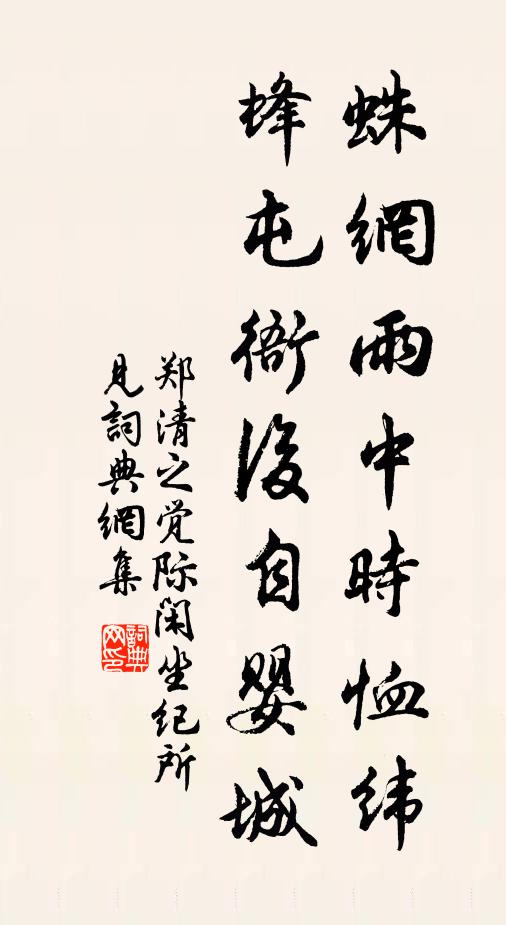 蛛網雨中時恤緯
蜂屯衙後自嬰城
郑清之觉际闲坐纪所
見詞典網集
詞典網印